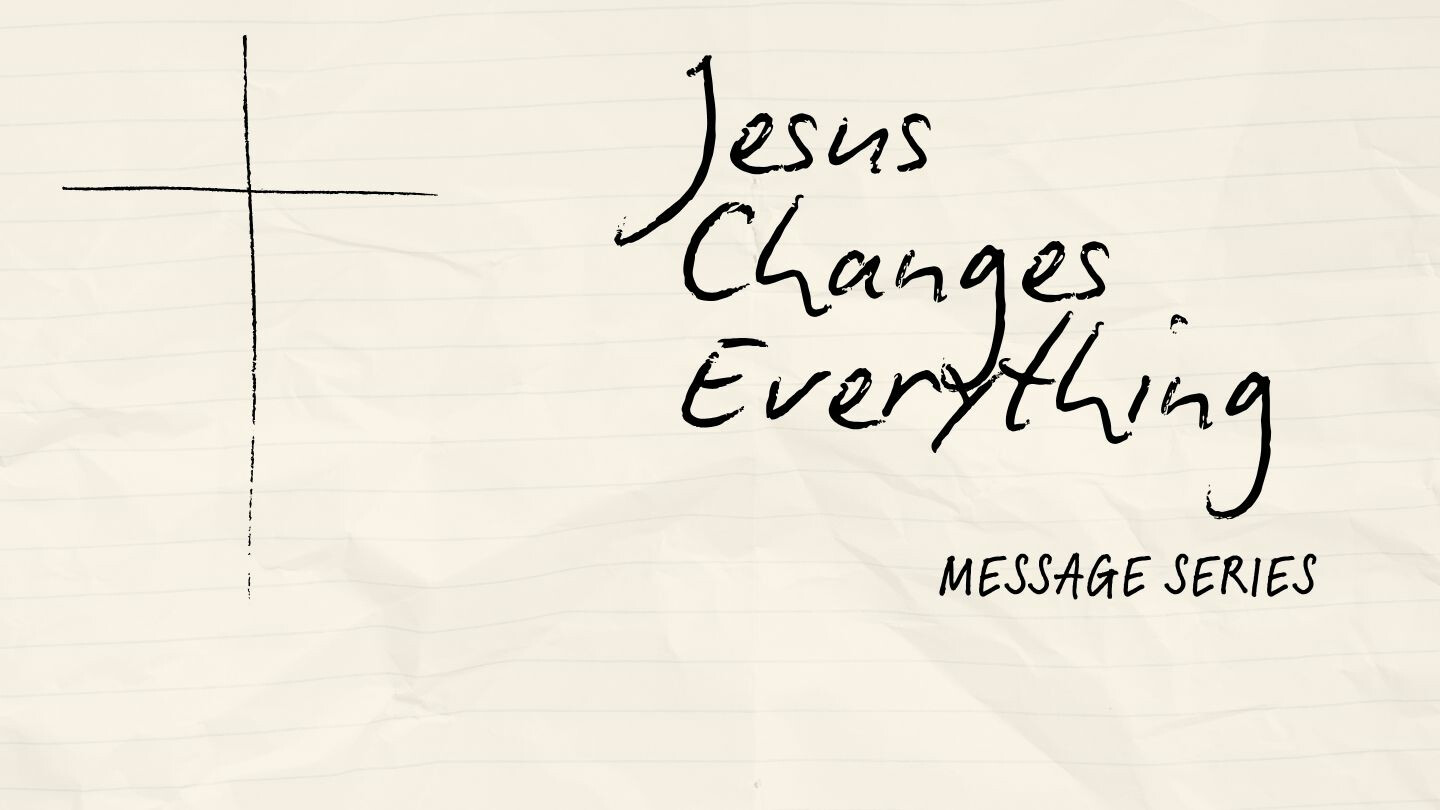 Jesus
Changes
Everything
MESSAGE SERIES